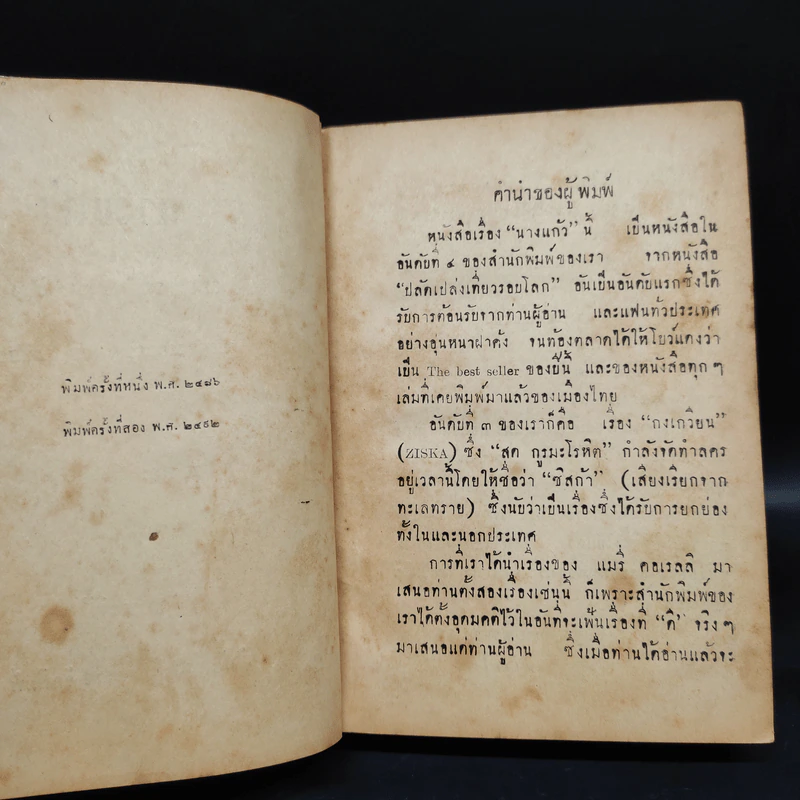 พิมพ์ครั้งที่หนึ่ง พ.ศ. ๒๔๗๖
พิมพ์ครั้งที่สอง พ.ศ. ๒๔๙๒
คำนำของผู้พิมพ์
หนังสือเรื่อง “นางแก้ว” นี้ เป็นหนังสือใน
อันดับที่ ๔ ของสำนักพิมพ์ของเรา จากหนังสือ
“ปลัดเปล่งเที่ยวรอบโลก” อันเป็นอันดับแรกซึ่งได้
รับการต้อนรับจากท่านผู้อ่าน และแฟนทั่วประเทศ
อย่างอุ่นหนาฝาคั่ง จนท้องตลาดได้ให้โบว์แดงว่า
เป็น The best seller ของปีนี้ และของหนังสือทุก ๆ
เล่มที่เคยพิมพ์มาแล้วของเมืองไทย
อันดับที่ ๓ ของเราก็คือ เรื่อง “กงเกวียน”
(ZISKA) ซึ่ง “สุด กูรมะโรหิต” กำลังจัดทำละคร
อยู่เวลานี้โดยให้ชื่อว่า “ซิสก้า” (เสียงเรียกจาก
ทะเลทราย) ซึ่งนับว่าเป็นเรื่องซึ่งได้รับการยกย่อง
ทั้งในและนอกประเทศ
การที่เราได้นำเรื่องของ แมรี่ คอเรลลี มา
เสนอท่านตั้งสองเรื่องเช่นนี้ ก็เพราะสำนักพิมพ์ของ
เราได้ตั้งอุดมคติไว้ในอันที่จะเฟ้นเรื่องที่ “ดี” จริง ๆ
มาเสนอแด่ท่านผู้อ่าน ซึ่งเมื่อท่านได้อ่านแล้วจะ